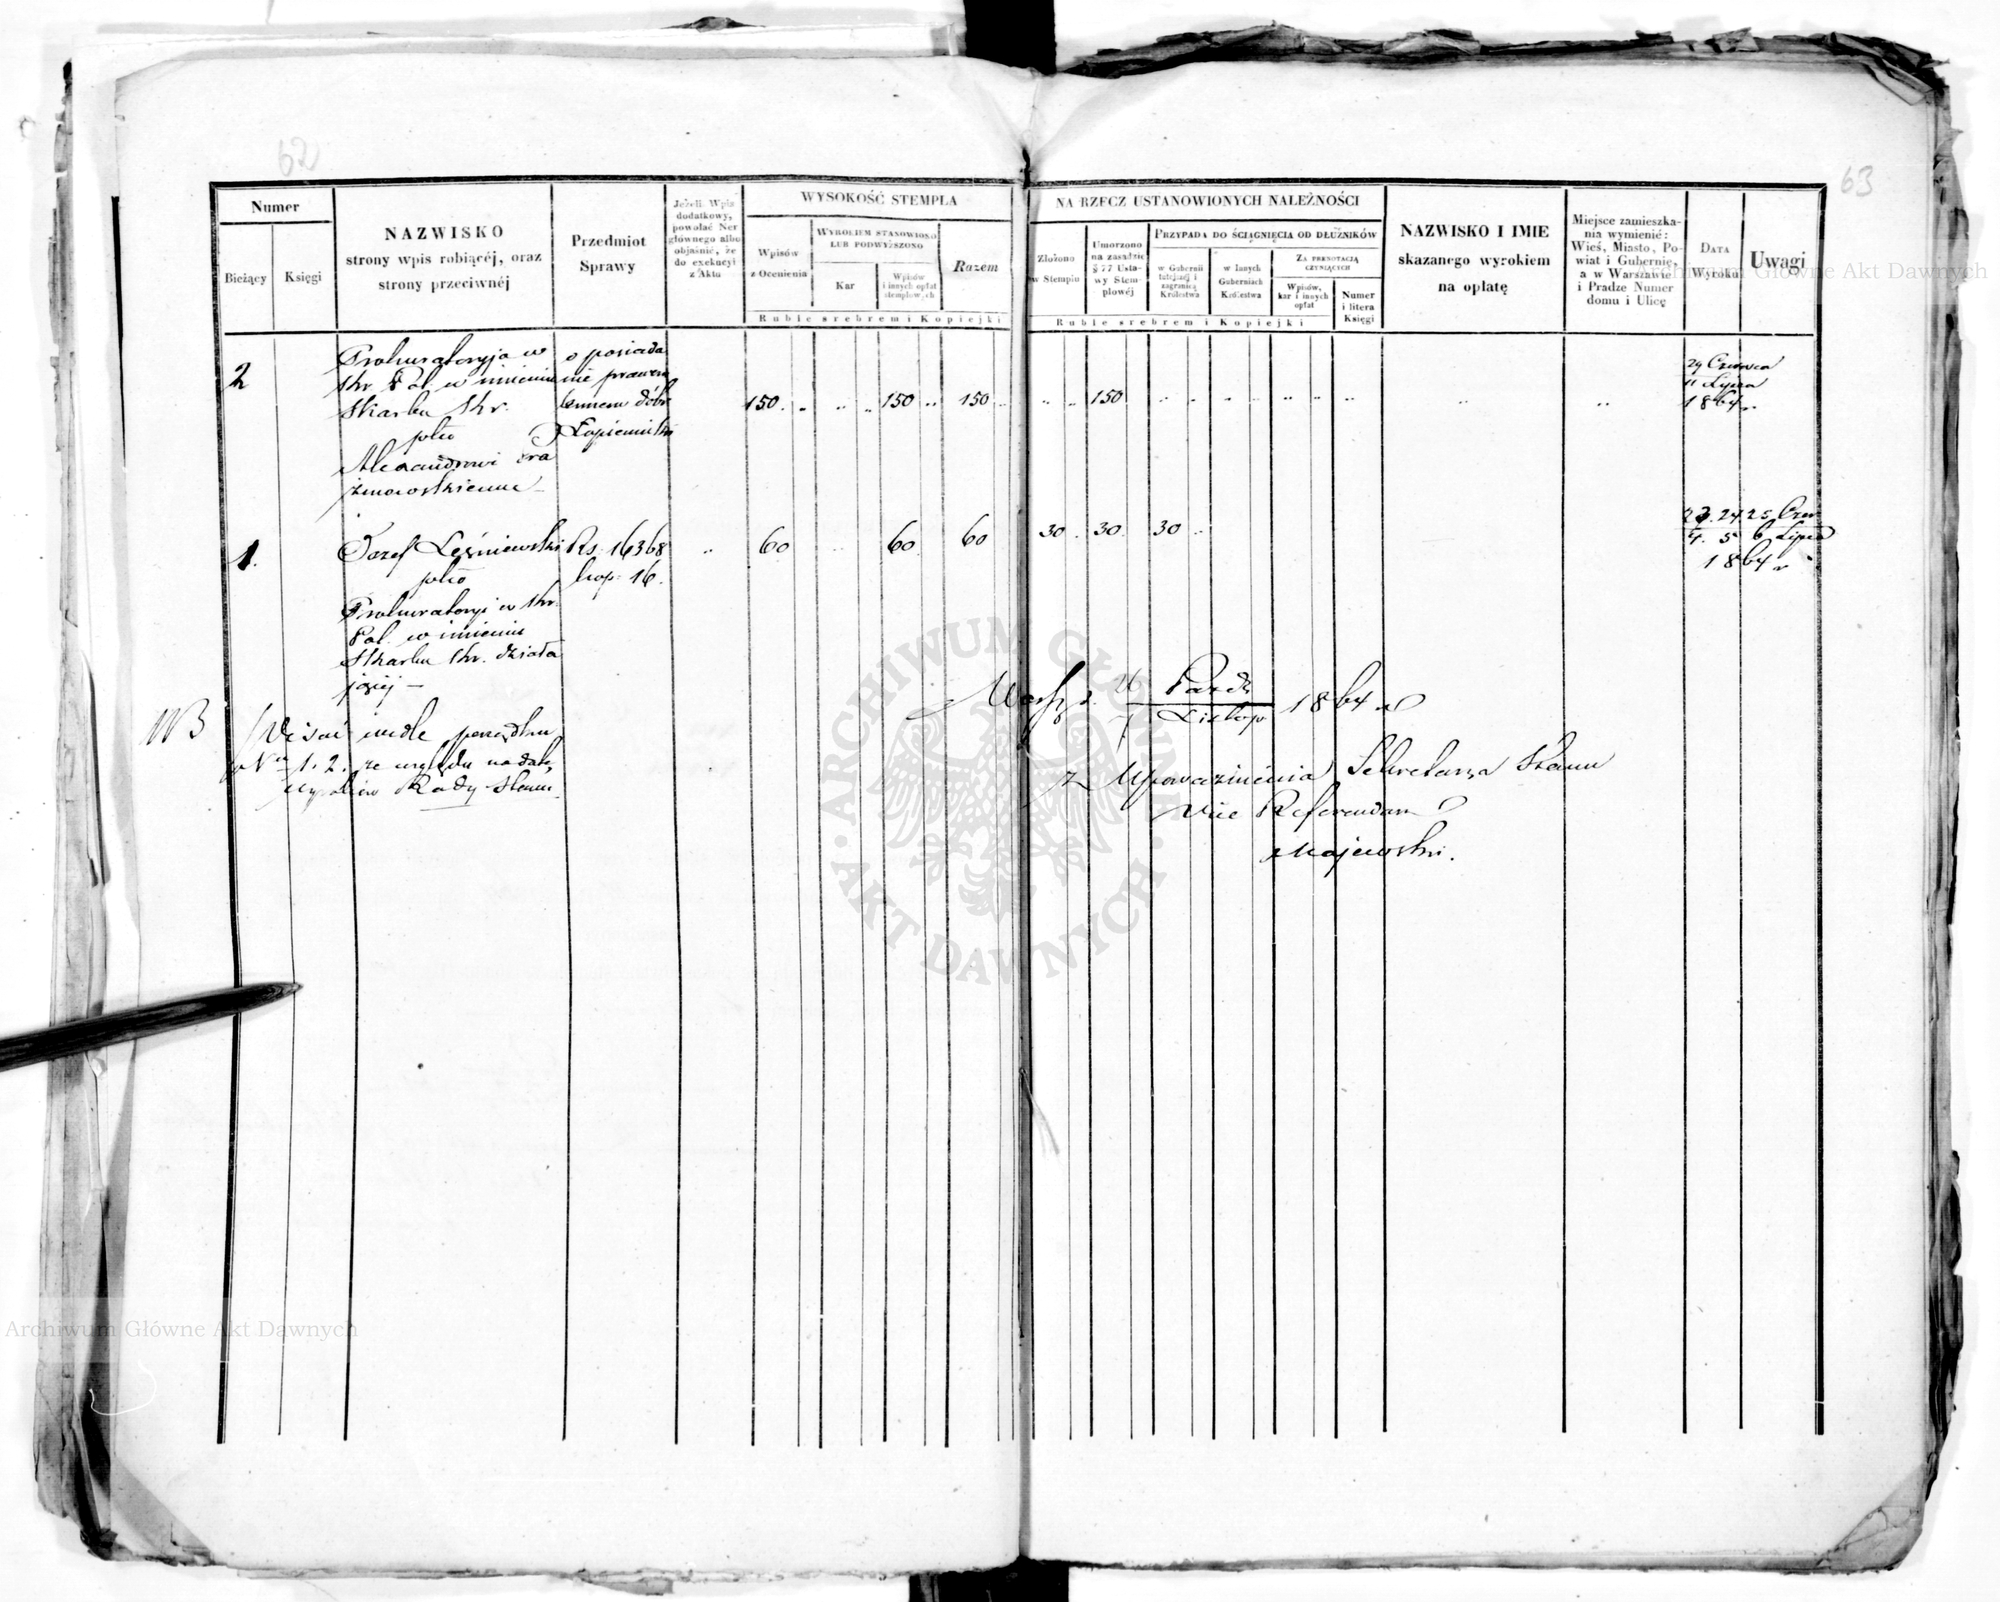 62
63
Numer
Bieżący
Księgi
NAZWISKO
strony wpis robiącéj, oraz
strony przeciwnéj
Przedmiot
Sprawy
Jeżeli Wpis
dodatkowy,
powołać Ner
głównego albo
objaśnić, że
do exekucyi
z Aktu
WYSOKOŚĆ STEMPLA
Wpisów
z Ocenienia
WYROKIEM STANOWIONO
LUB PODWYŻSZONO
Kar
Wpisów
i innych opłat
stemplowych
Razem
Ruble srebrem i Kopiejki
NA RZECZ USTANOWIONYCH NALEŻNOŚCI
Złożono
w Stemplu
Umorzono
na zasadzie
§ 77 Usta-
wy Stem-
plowéj
PRZYPADA DO ŚCIĄGNIĘCIA OD DŁUŻNIKÓW
w Gubernii
tutejszéj i
zagranicą
Królestwa
w Innych
Guberniach
Królestwa
ZA PRENOTACJĄ
CZYNIĄCYCH
Wpisów,
kar i innych
opłat
Numer
i litera
Księgi
Ruble srebrem i Kopiejki
NAZWISKO I IMIE
skazanego wyrokiem
na opłatę
Miejsce zamieszka-
nia wymienić:
Wieś, Miasto, Po-
wiat i Gubernię,
a w Warszawie
i Pradze Numer
domu i Ulicę
DATA
Wyroku
Uwagi
2
Prokuratoryja w
Kr. Pol. w imieniu
Skarbu Kr.
pko
Alexandrowi Kra
o posiada
nie prawem
dóbr
150 150 150 150
29 Czerwca
11 Lipca
1864 r
1.
Józef Leśniewski
pko
Prokuratoryi w Kr.
Pol. w imieniu
Skarbu Kr. działa
jącéj
Rs. 16368
kop. 16.
60 60 60 30 30 30
23. 24. 25. Czer
4. 5 6 Lipca
1864 r
NB
wedle porządku
1. 2. ze względu na datę
wyroków Rady Stanu
Paźdz
Listop
1864 r
z Upoważnienia Sekretarza Stanu
Vice Referendarz
Majewski.
ARCHIWUM GŁÓWNE · AKT DAWNYCH ·
Archiwum Główne Akt Dawnych
Archiwum Główne Akt Dawnych